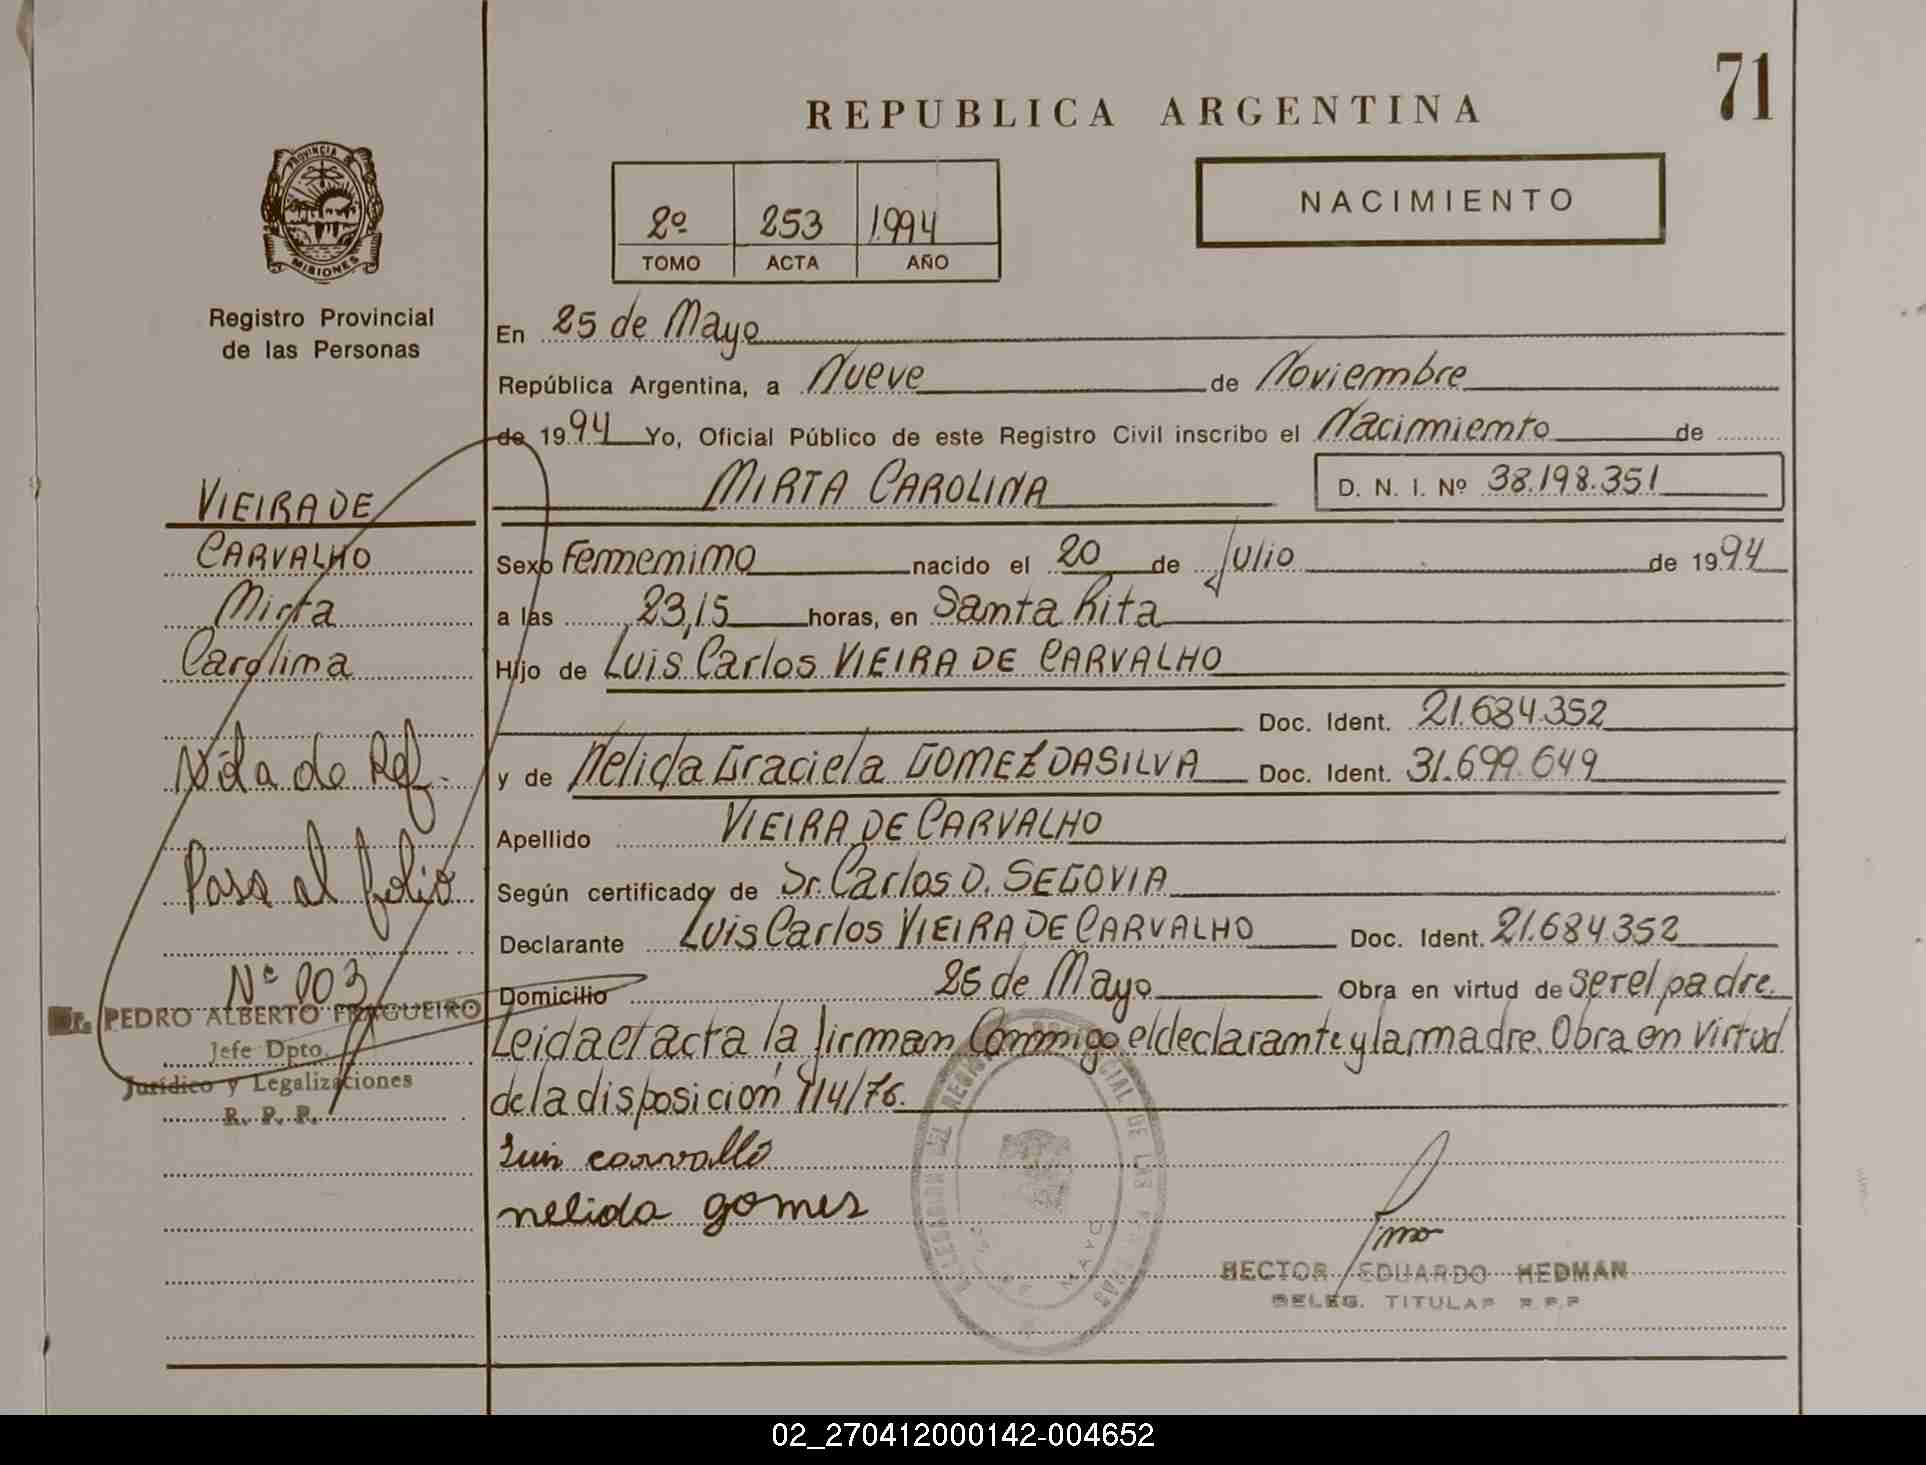 71
REPUBLICA ARGENTINA
NACIMIENTO
2º 253 1.994
TOMO ACTA AÑO
PROVINCIA DE
MISIONES
Registro Provincial
de las Personas
VIEIRA DE
CARVALHO
Mirta
Carolina
Nota de Ref.
Pasa al folio
Nº 003
Dr. PEDRO ALBERTO FRAGUEIRO
Jefe Dpto.
Jurídico y Legalizaciones
R. P. P.
En 25 de Mayo
República Argentina, a Nueve de Noviembre
de 1994 Yo, Oficial Público de este Registro Civil inscribo el Nacimiento de
MIRTA CAROLINA D. N. I. Nº 38.198.351
Sexo Femenino nacido el 20 de Julio de 1994
a las 23,15 horas, en Santa Rita
Hijo de Luis Carlos VIEIRA DE CARVALHO
Doc. Ident. 21.684.352
y de Nelida Graciela GOMEZ DASILVA Doc. Ident. 31.699.649
Apellido VIEIRA DE CARVALHO
Según certificado de Dr. Carlos D. SEGOVIA
Declarante Luis Carlos VIEIRA DE CARVALHO Doc. Ident. 21.684.352
Domicilio 25 de Mayo Obra en virtud de ser el padre.
Leida el acta, la firman Conmigo el declarante y la madre. Obra en Virtud
de la disposición 114/76.
Luis carvallo
nelida gomes
HECTOR EDUARDO HEDMAN
DELEG. TITULAR R.P.P
02_270412000142-004652